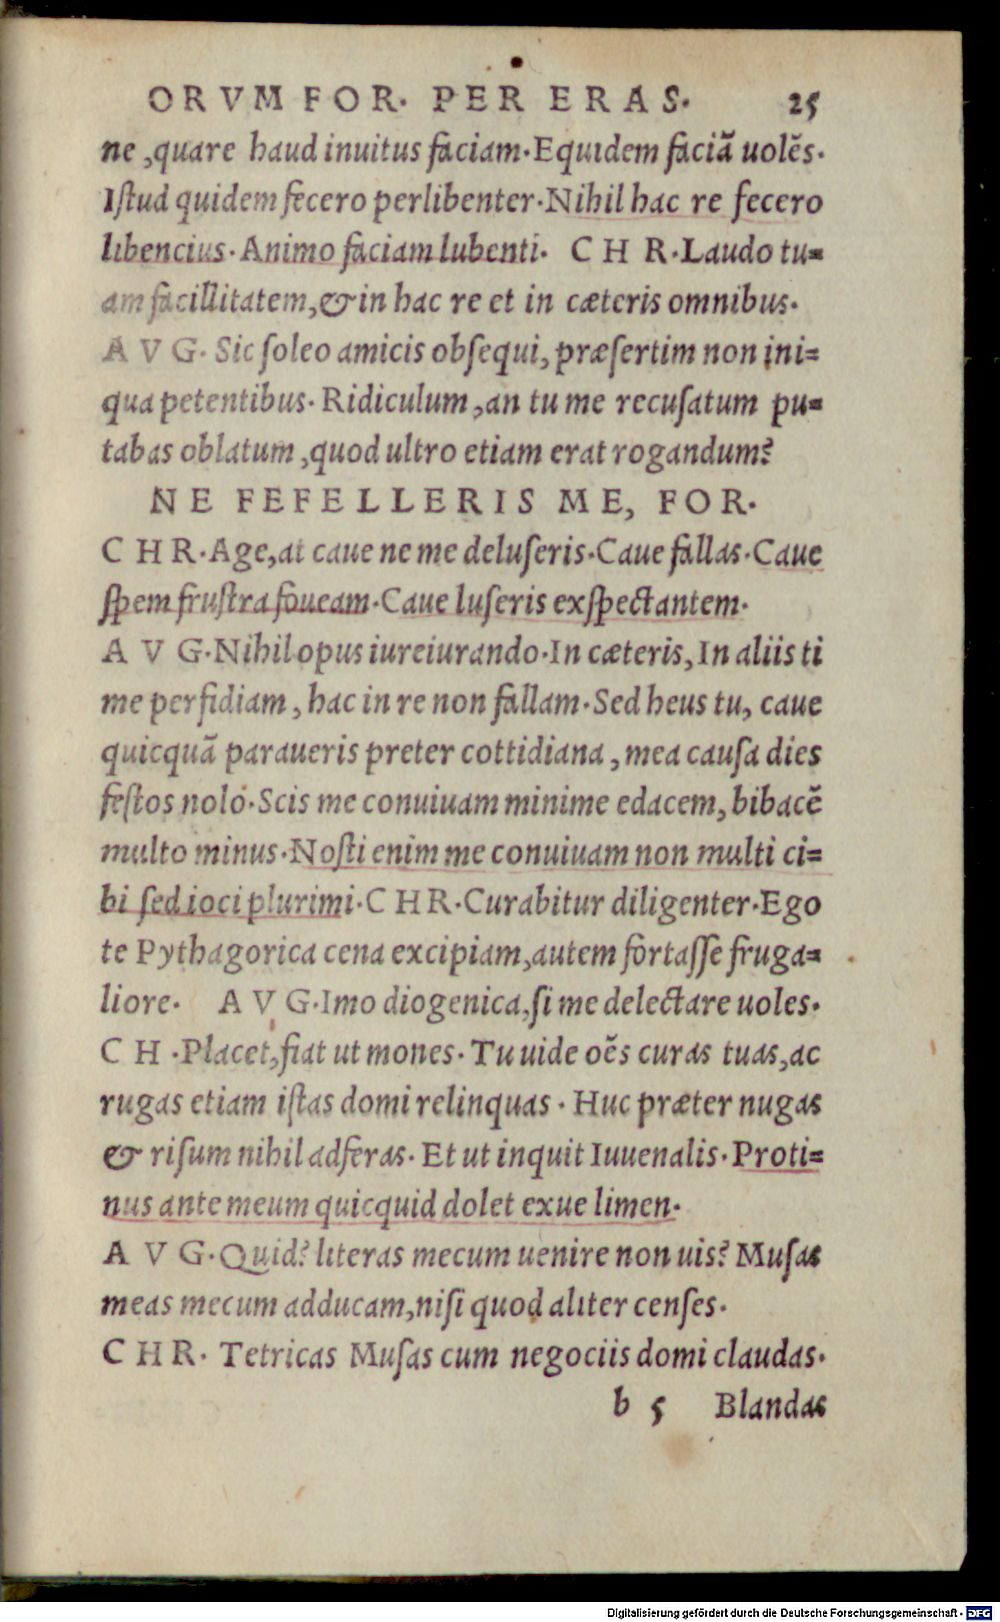 ORVM FOR. PER ERAS. 25
ne, quare haud inuitus faciam. Equidem faciã uolẽs.
Iſtud quidem fecero perlibenter. Nihil hac re fecero
libencius. Animo faciam lubenti. CHR. Laudo tu=
am facillitatem, & in hac re et in cæteris omnibus.
AVG. Sic ſoleo amicis obſequi, præſertim non ini=
qua petentibus. Ridiculum, an tu me recuſatum pu=
tabas oblatum, quod ultro etiam erat rogandum?
NE FEFELLERIS ME, FOR.
CHR. Age, at caue ne me deluſeris. Caue fallas. Caue
ſpem fruſtra foueam. Caue luſeris exſpectantem.
AVG. Nihil opus iureiurando. In cæteris, In aliis ti
me perfidiam, hac in re non fallam. Sed heus tu, caue
quicquã paraueris preter cottidiana, mea cauſa dies
feſtos nolo. Scis me conuiuam minime edacem, bibacẽ
multo minus. Noſti enim me conuiuam non multi ci=
bi ſed ioci plurimi. CHR. Curabitur diligenter. Ego
te Pythagorica cena excipiam, autem fortaſſe fruga=
liore. AVG. Imo diogenica, ſi me delectare uoles.
CH. Placet, fiat ut mones. Tu uide oẽs curas tuas, ac
rugas etiam iſtas domi relinquas. Huc præter nugas
& riſum nihil adferas. Et ut inquit Iuuenalis. Proti=
nus ante meum quicquid dolet exue limen.
AVG. Quid? literas mecum uenire non uis? Muſas
meas mecum adducam, niſi quod aliter cenſes.
CHR. Tetricas Muſas cum negociis domi claudas.
b 5 Blandas
Digitalisierung gefördert durch die Deutsche Forschungsgemeinschaft - DFG